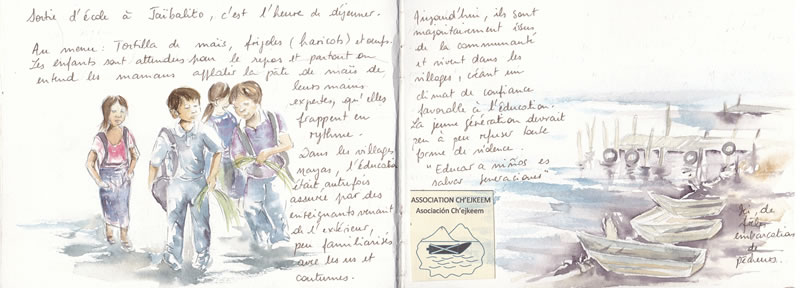 Sortie d'École à Jaïbalito, c'est l'heure du déjeuner.
Au menu : Tortilla de maïs, frijoles (haricots) et oeufs.
Les enfants sont attendus pour le repas et partout on
entend les mamans applatir la pâte de maïs de
leurs mains
expertes, qu'elles
frappent en
rythme.
Dans les villages
mayas, l'Éducation
était autrefois
assurée par des
enseignants venant
de l'extérieur,
peu familiarisés
avec les us et
coutumes.
Aujourd'hui, ils sont
majoritairement issus
de la communauté
et vivent dans les
villages, créant un
climat de confiance
favorable à l'Éducation.
La jeune génération devrait
peu à peu refuser toute
forme de violence.
"Educar a niños es
salvar generaciones"
ASSOCIATION CH'EJKEEM
Asociación Ch'ejkeem
Ici, de
frêles
embarcations
de
pêcheurs.